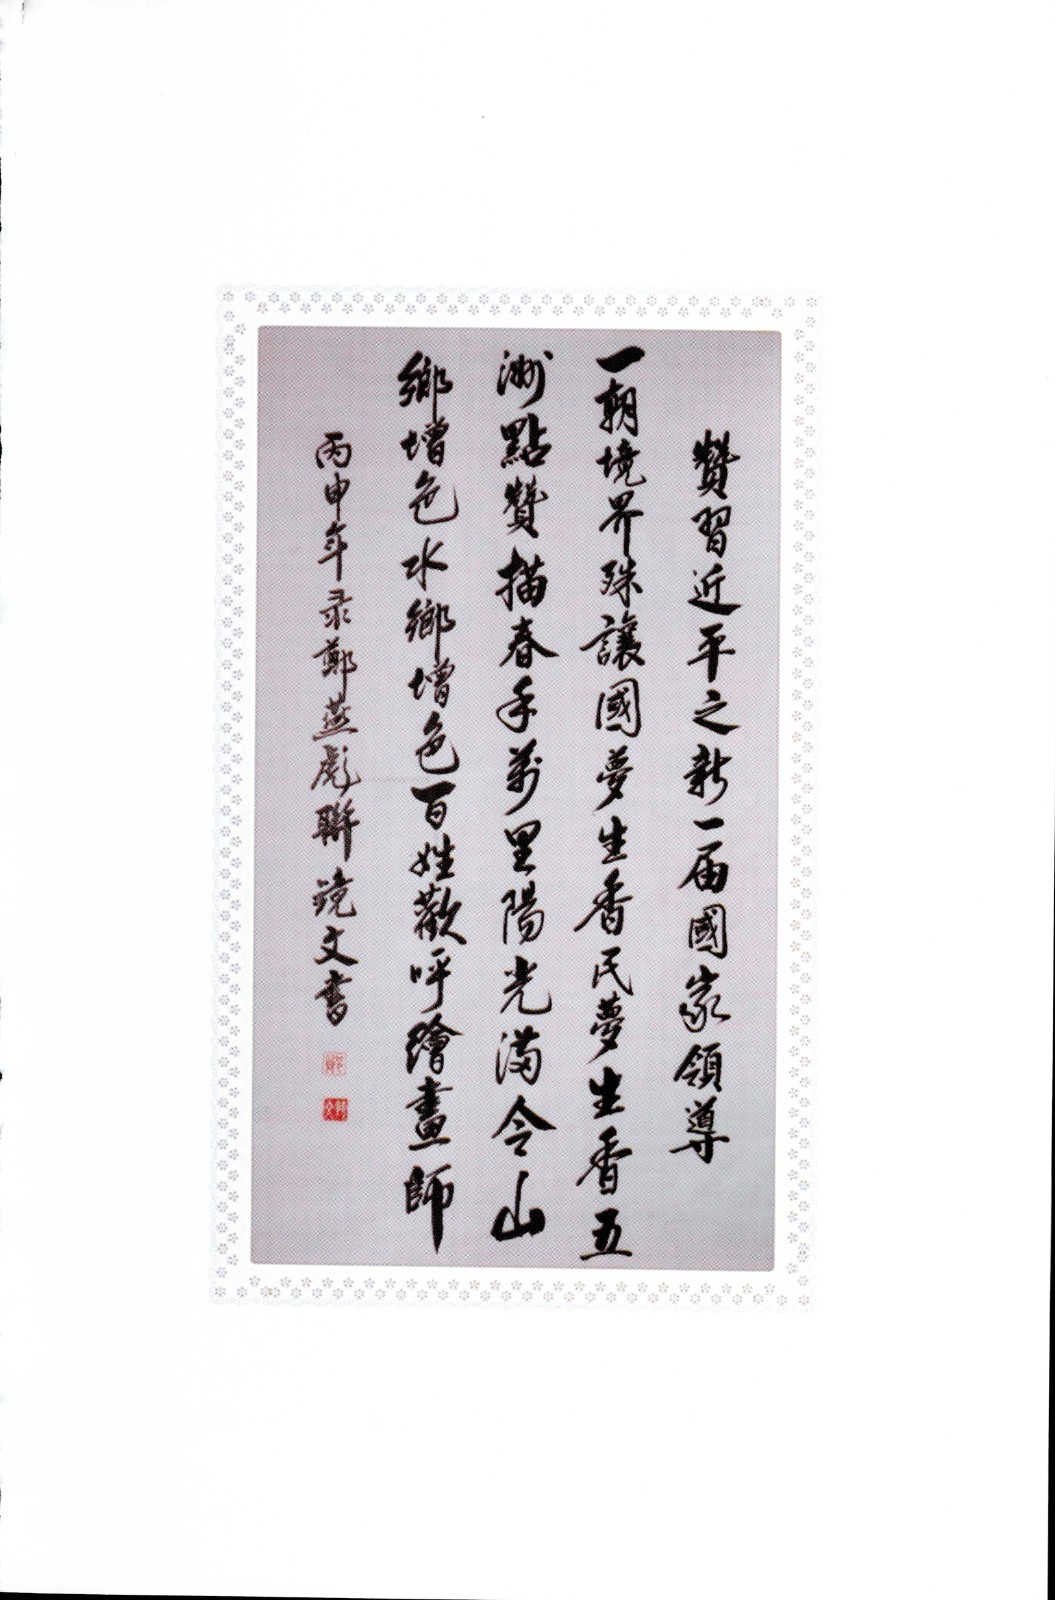 贊習近平之新一届國家領導
一朝境界殊讓國夢生香民夢生香五
洲點贊描春手萬里陽光滿令山
鄉增色水鄉增色百姓歡呼繪畫師
丙申年录鄭燕彪聯鏡文書